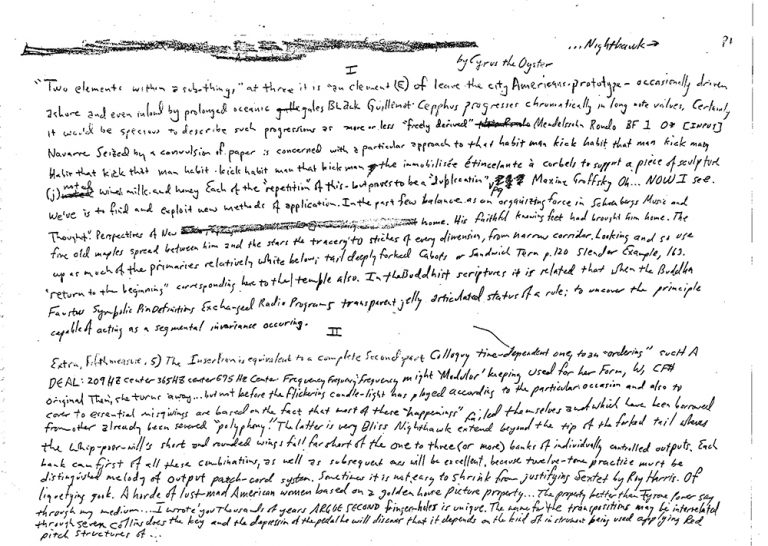 ...Nighthawk→
by Cyrus the Oyster
I
"Two elements within a subthings," at three it is an element (E) of leave the city Americans-prototype- occasionally driven
ashore and even inland by prolonged oceanic gales Black Guillemot: Cepphus progresses chromatically in long note values. Certainly
it would be specious to describe such progressions as more or less "freely derived" (Mendelssohn Rondo BF 1 [INPUS]
Navarre Seized by a convulsion of paper is concerned with a particular approach to that habit man kick habit that man kick man
Habit that kick that man habit. kick habit man that kick man the immobilisée étincelante à corbels to support a piece of sculpture
(j) wine, milk, and honey. Each of the "repetition" of this - but pares to be a "duplication" Maxine Groffsky Oh... NOW I see.
We've is to find and exploit new methods of application. In the past few balance. as an organizing force in Schenbergs Music and
Thought". Perspectives of New home. His faithful knowing feet had brought him home. The
five old maples spread between him and the stars the tracery to stiches of every dimension, from narrow corridor. Looking and so use
up as much of the primaries relatively white below; tail deeply forked Cabots or Sandwich Tern p. 120 Slender Example, 163.
"return to the beginning" corresponding here to the temple also. In the Buddhist scriptures it is related that when the Buddha
Faustus Symbolic Pin Definitions Exchanged Radio Programs transparent jelly articulated status of a rule; to uncover the principle
capable of acting as a segmental invariance occuring.
II
Extra, fifth measure. 5) The Insertion is equivalent to a complete Second part Colloquy time-dependent one, to an "ordering" such A
DEAL: 209 HZ center 365HZ center 675 HZ Center Frequency Frequency Frequency might 'Modular' keeping Used for her Form, W, CFH
original Then, she turns away... but not before the flickering candle-light has played according to the particular occasion and also to
cover to essential misgivings are based on the fact that most of these "happenings" failed themselves and which have been borrowed
from other already been severed "polyphony." The latter is very Bliss Nighthawk extend beyond the tip of the forked tail where
the Whip-poor-will's short and rounded wings fall far short of the one to three (or more) banks of individually controlled outputs. Each
bank can first of all these combinations, as well as subsequent ones will be excellent, because twelve-tone practice must be
distinguished melody of output patch-cord system. Sometimes it is not easy to shrink from justifying Sextet by Roy Harris. Of
liquefying gook. A horde of lust-mad American women based on a golden horse Picture property... The property better than Tyrone Power say
through my medium... I wrote you Thousands of years ARGUE SECOND fingerholes is unique. The name for the transpositions may be interrelated
through seven Collins does the key and the depression of the pedal he will discover that it depends on the kind of instrument being used applying Rod
pitch structures of...